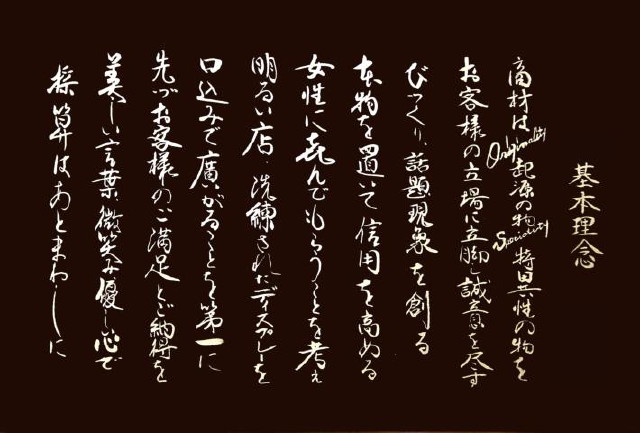 基本理念
商材は Originality 起源の物 Speciality 特異性の物を
お客様の立場に立脚し誠意を尽す
びっくり、話題現象を創る
本物を置いて信用を高める
女性に喜んでもらうことを考え
明るい店、洗練されたディスプレーを
口込みで廣がることを第一に
先づお客様のご満足とご納得を
美しい言葉、微笑み優しい心で
採算はあとまわしに